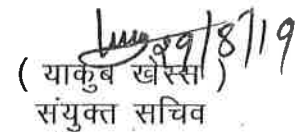 29/8/19
( याकुब खेस्स )
संयुक्त सचिव